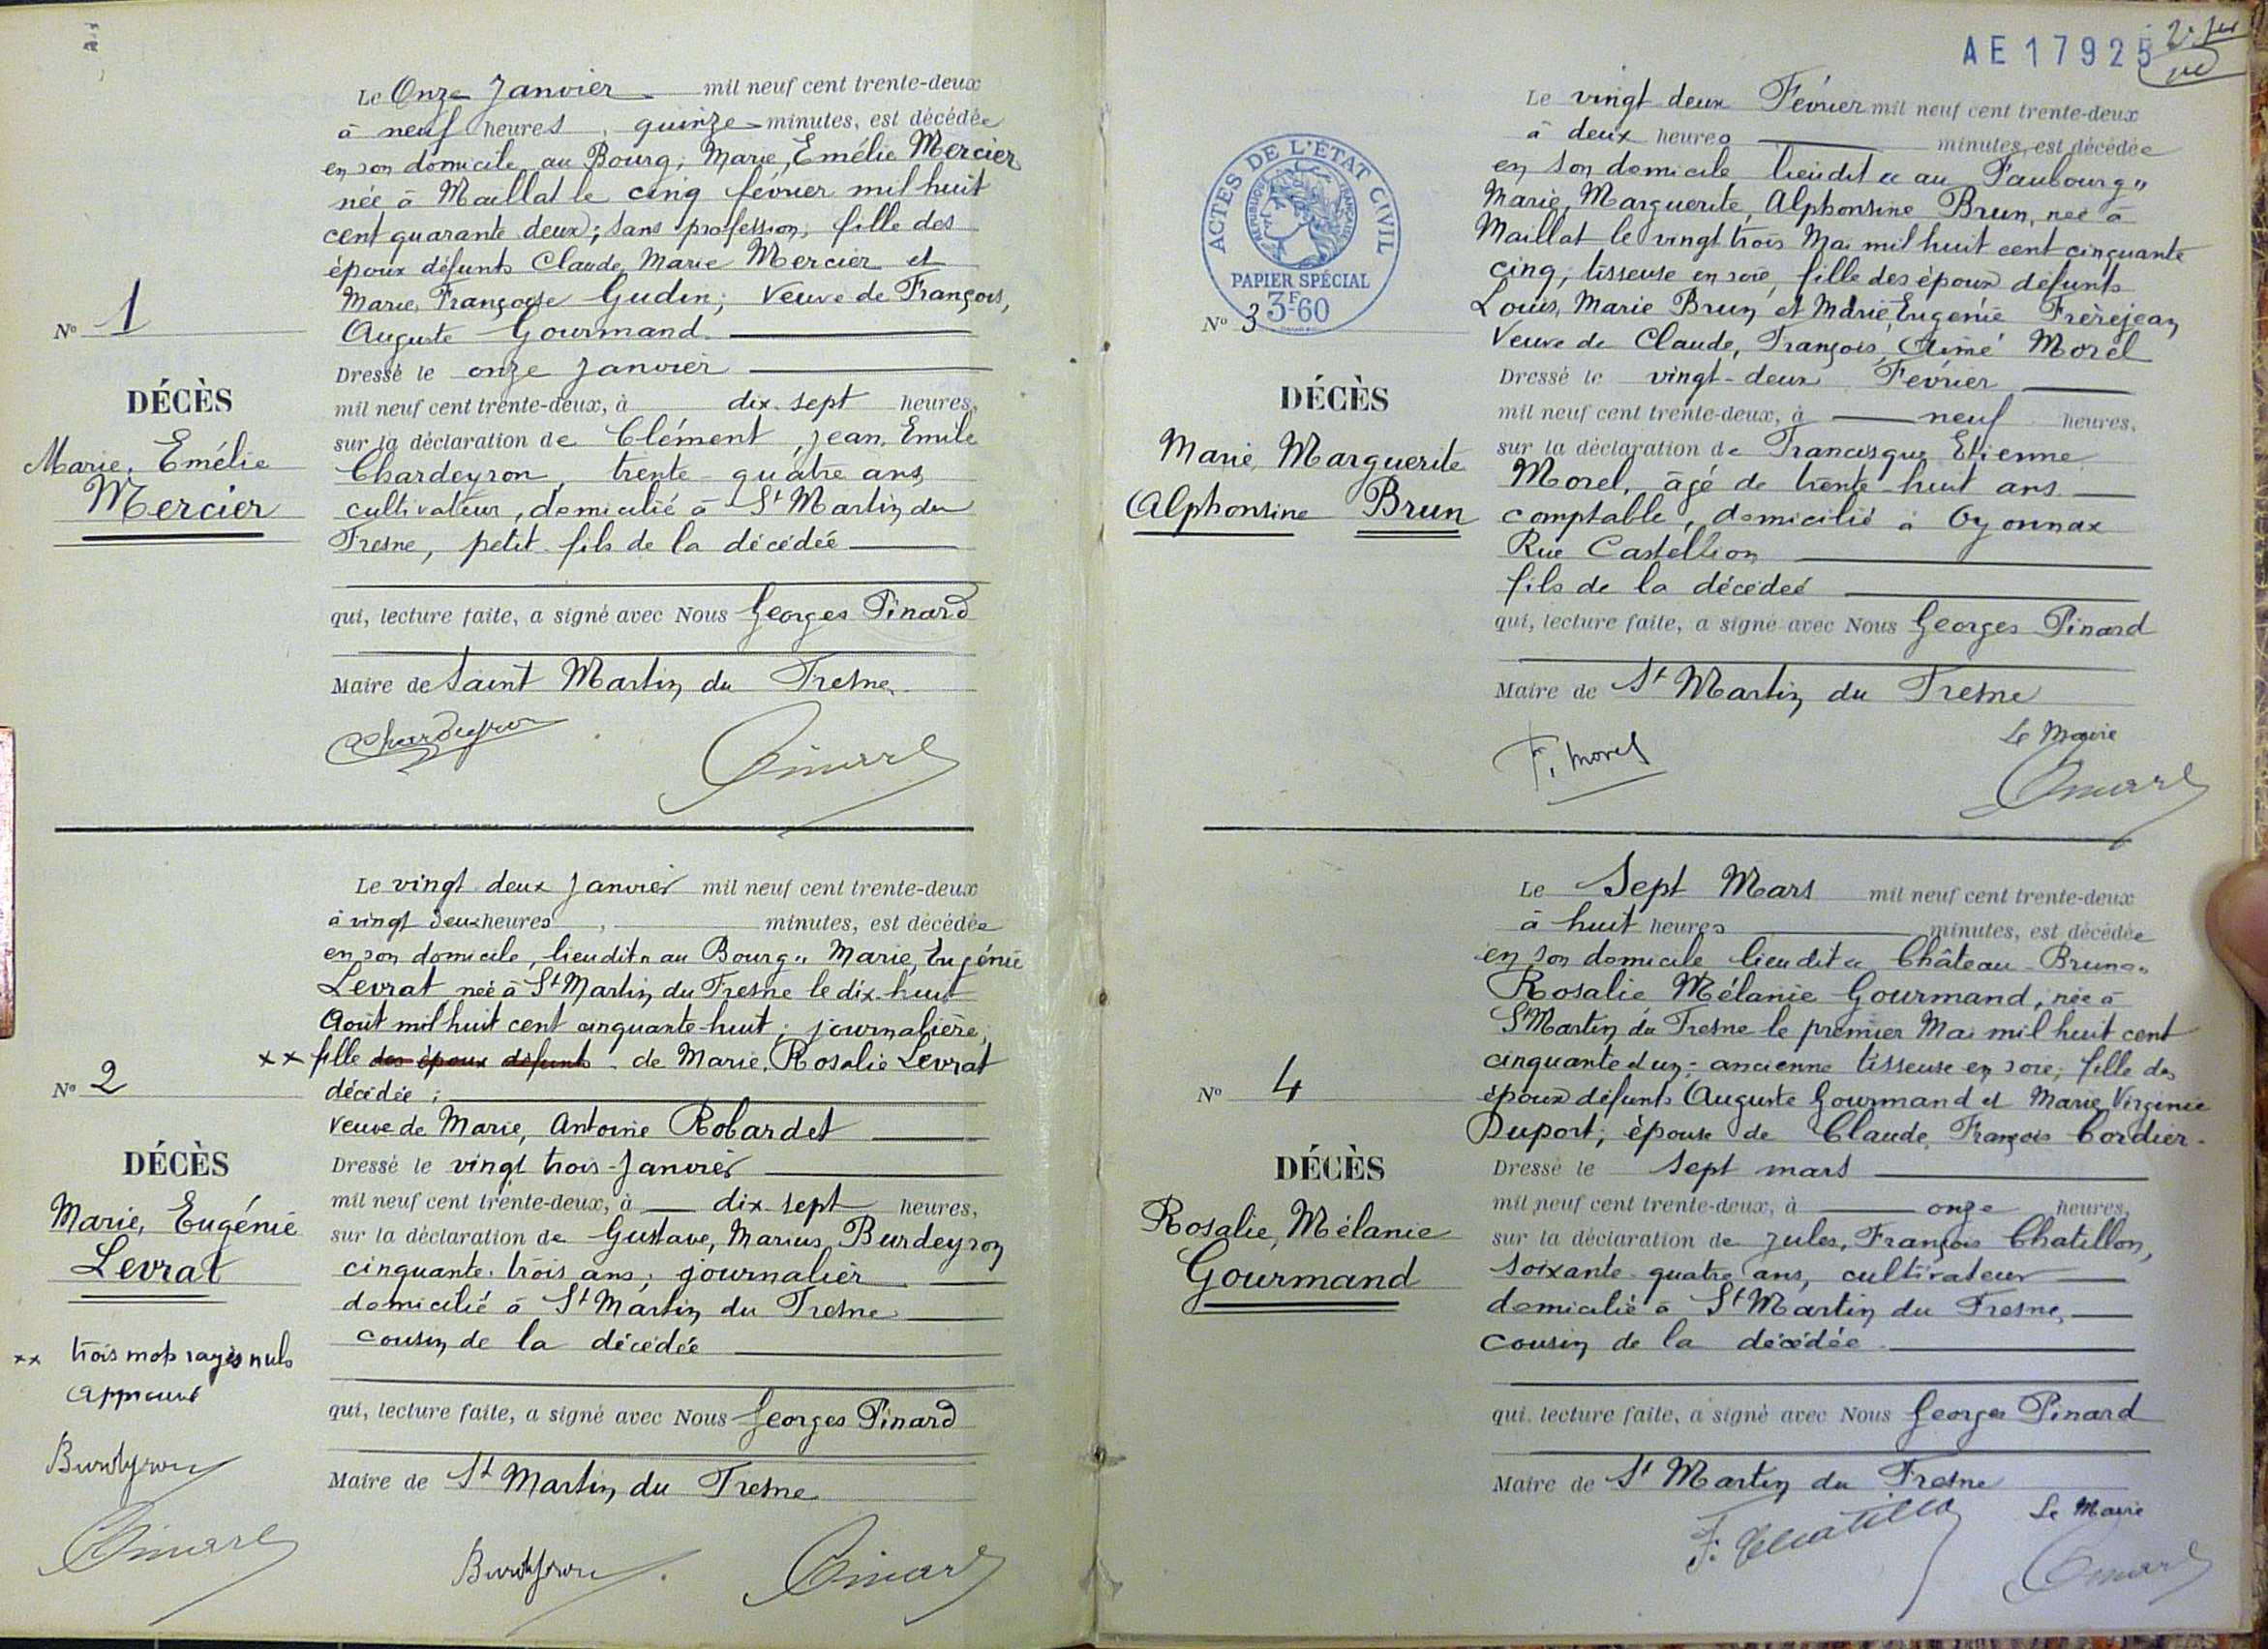 Le Onze Janvier mil neuf cent trente-deux
à neuf heures, quinze minutes, est décédée
en son domicile au Bourg, Marie, Emélie Mercier
née à Maillat le cinq février mil huit
cent quarante deux; sans profession, fille des
époux défunts Claude Marie Mercier et
Marie, Françoise Gudin; Veuve de François,
Auguste Gourmand.
Dressé le onze Janvier
mil neuf cent trente-deux, à dix-sept heures,
sur la déclaration de Clément, Jean, Emile
Chardeyron, trente-quatre ans
cultivateur, domicilié à St Martin du
Fresne, petit-fils de la décédée
qui, lecture faite, a signé avec Nous Georges Pinard
Maire de Saint Martin du Fresne.
Chardeyron
Pinard
N° 1
DÉCÈS
Marie, Emélie
Mercier
Le vingt deux Janvier mil neuf cent trente-deux
à vingt deux heures, minutes, est décédée
en son domicile, lieudit "au Bourg" Marie, Eugénie
Levrat, née à St Martin du Fresne le dix-huit
Août mil huit cent cinquante-huit; journalière;
xx fille des époux défunts de Marie, Rosalie Levrat
décédée;
veuve de Marie, Antoine Robardet
Dressé le vingt trois Janvier
mil neuf cent trente-deux, à dix-sept heures,
sur la déclaration de Gustave, Marius Burdeyron
cinquante-trois ans; journalier
domicilié à St Martin du Fresne
cousin de la décédée
qui, lecture faite, a signé avec Nous Georges Pinard
Maire de St Martin du Fresne
Burdeyron
Pinard
N° 2
DÉCÈS
Marie, Eugénie
Levrat
xx trois mots rayés nuls
Approuvé
Burdeyron
Pinard
AE17925
ACTES DE L'ÉTAT CIVIL
RÉPUBLIQUE FRANÇAISE
PAPIER SPÉCIAL
3F60
Le vingt deux Février mil neuf cent trente-deux
à deux heures minutes, est décédée
en son domicile lieudit "au Faubourg"
Marie, Marguerite, Alphonsine Brun, née à
Maillat le vingt trois Mai mil huit cent cinquante
cinq, tisseuse en soie, fille des époux défunts
Louis, Marie Brun et Marie, Eugénie Frèrejean
Veuve de Claude, François, Aimé Morel
Dressé le vingt-deux Février
mil neuf cent trente-deux, à neuf heures,
sur la déclaration de Francisque Etienne
Morel, âgé de trente-huit ans
comptable, domicilié à Oyonnax
Rue Castellion
fils de la décédée
qui, lecture faite, a signé avec Nous Georges Pinard
Maire de St Martin du Fresne
F. Morel
Le Maire
Pinard
N° 3
DÉCÈS
Marie, Marguerite
Alphonsine Brun
Le Sept Mars mil neuf cent trente-deux
à huit heures minutes, est décédée
en son domicile lieudit "Château-Bruno"
Rosalie Mélanie Gourmand, née à
St Martin du Fresne le premier Mai mil huit cent
cinquante et un; ancienne tisseuse en soie; fille des
époux défunts Auguste Gourmand et Marie Virginie
Duport; épouse de Claude, François Cordier.
Dressé le sept mars
mil neuf cent trente-deux, à onze heures,
sur la déclaration de Jules, François Chatillon,
soixante-quatre ans, cultivateur
domicilié à St Martin du Fresne,
cousin de la décédée
qui, lecture faite, a signé avec Nous Georges Pinard
Maire de St Martin du Fresne
F. Chatillon
Le Maire
Pinard
N° 4
DÉCÈS
Rosalie, Mélanie
Gourmand